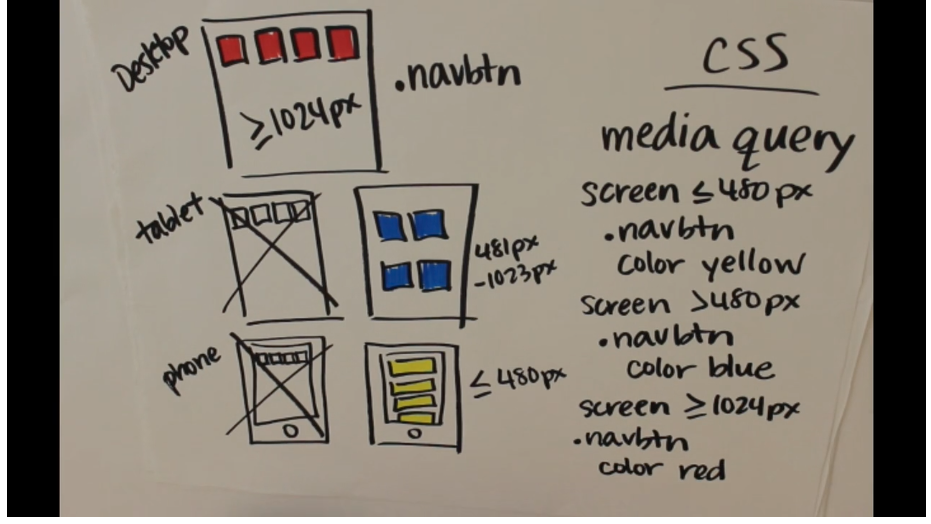 Desktop
≥1024px
.navbtn
tablet
481px
-1023px
phone
≤480px
CSS
media query
screen ≤480px
.navbtn
color yellow
screen >480px
.navbtn
color blue
screen ≥1024px
.navbtn
color red